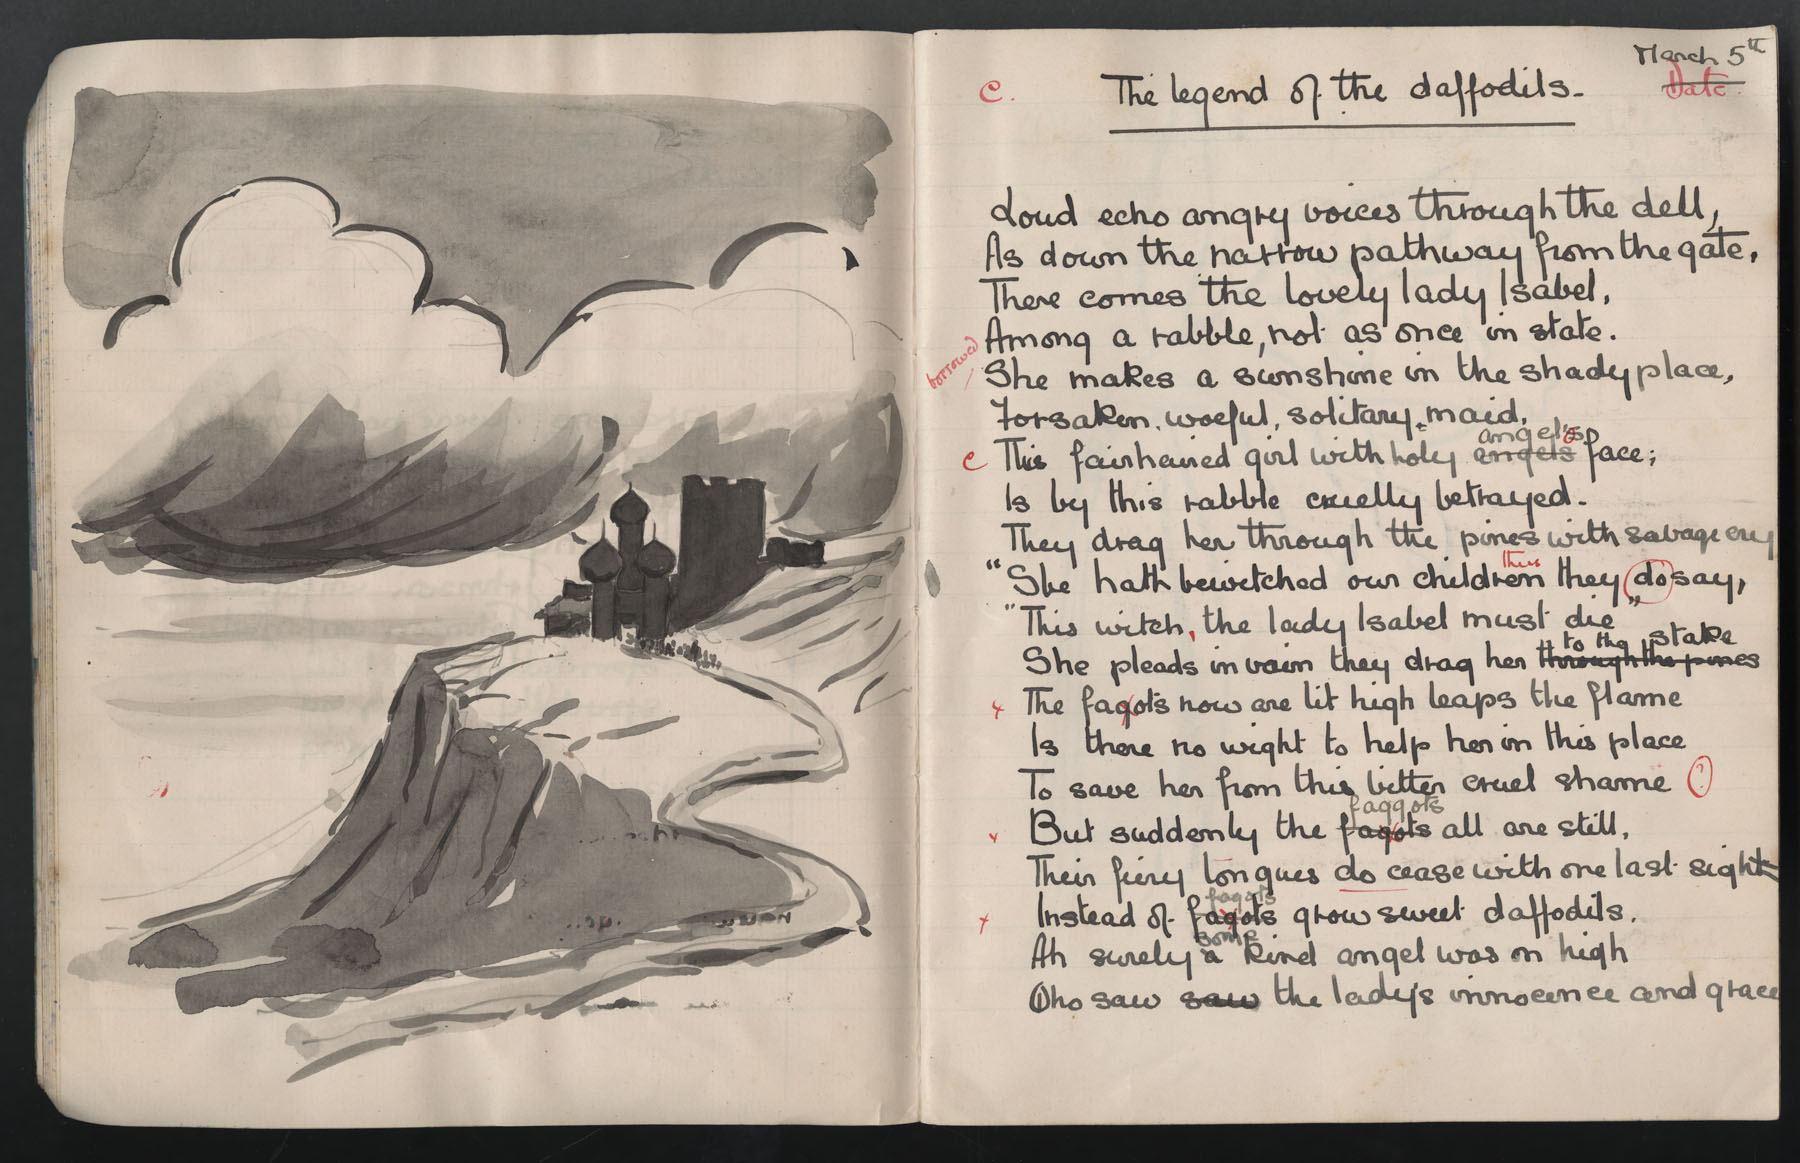 March 5th
C. The legend of the daffodils.
Date.
Loud echo angry voices through the dell,
As down the narrow pathway from the gate,
There comes the lovely lady Isabel,
Among a rabble, not as once in state.
borrowed
She makes a sunshine in the shady place,
Forsaken, woeful, solitary maid,
angel's
c This fairhaired girl with holy angels face;
Is by this rabble cruelly betrayed.
They drag her through the pines with savage cry
thus
"She hath bewitched our children they do say,
"This witch, the lady Isabel must die"
to the stake
She pleads in vain they drag her through the pines
x The fagots now are lit high leaps the flame
Is there no wight to help her in this place
To save her from this bitter cruel shame ?
faggots
x But suddenly the fagots all are still,
Their fiery tongues do cease with one last sigh
fagots
x Instead of fagots grow sweet daffodils.
some
Ah surely a kind angel was on high
Who saw saw the lady's innocence and grace